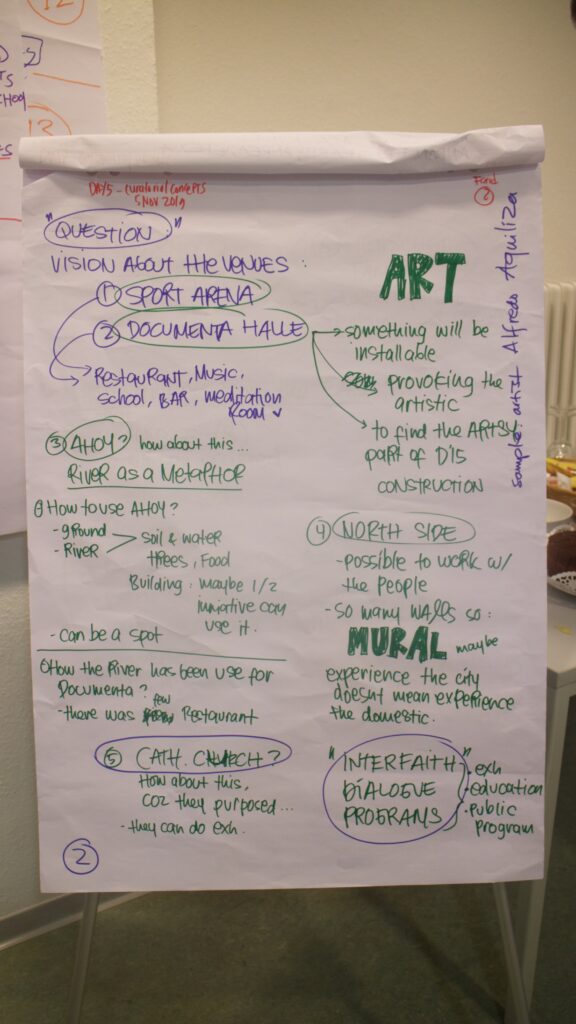 12
13
DAY5 - Curatorial Concepts
5 NOV 2019
Farid
2
"QUESTION"
VISION ABOUT the VENUES :
① SPORT ARENA
② DOCUMENTA HALLE
Restaurant, Music,
school, BAR, meditation
Room
ART
→ something will be
installable
provoking the
artistic
to find the ARTSY
part of D15
CONSTRUCTION
sample: artist Alfredo Aquiliza
③ AHOY? how about this...
River as a Metaphor
How to use AHOY?
- ground
- River
soil & water
trees, Food
Building : maybe 1/2
inniative can
use it.
- can be a spot
How the River has been use for
Documenta?
- there was few Restaurant
④ NORTH SIDE
- possible to work w/
the People
- so many walls so :
MURAL maybe
experience the city
doesnt mean experience
the domestic.
⑤ CATH. CHURCH?
How about this,
coz they purposed...
- they can do exh.
"INTERFAITH
DIALOGUE
PROGRAMS"
. exh
. education
. Public
program
2